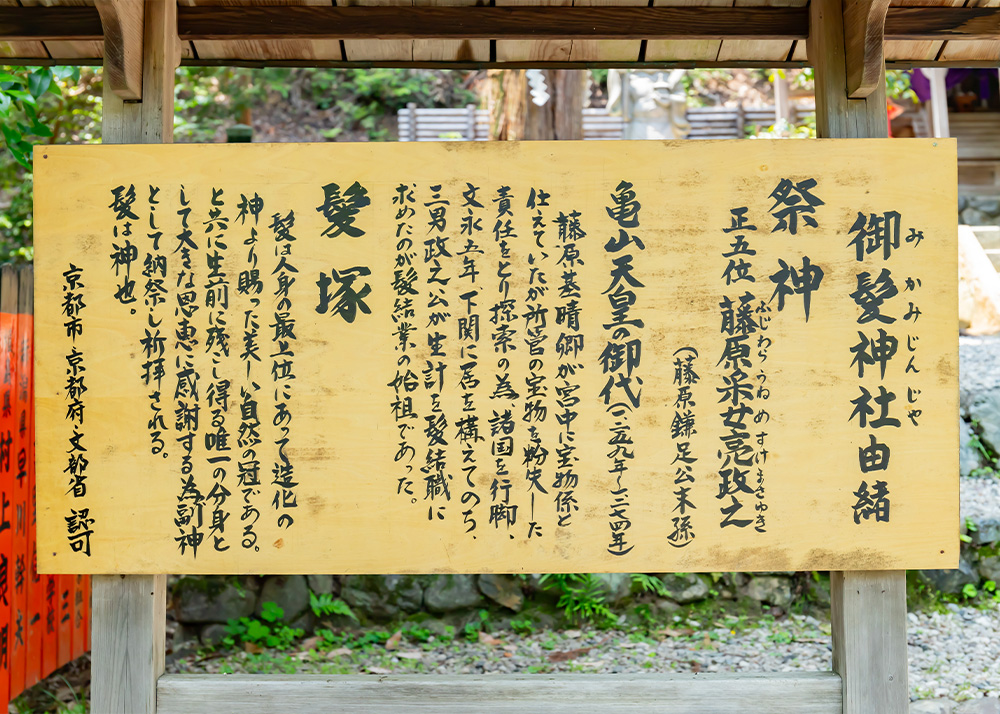 御髪神社由緒
みかみじんじゃ
祭神
正五位 藤原采女亮政之
ふじわらうねめすけまさゆき
(藤原鎌足公末孫)
亀山天皇の御代(一二五九年~一二七四年)
藤原基晴卿が宮中に宝物係と
仕えていたが所管の宝物を紛失した
責任をとり探索の為、諸国を行脚、
文永五年、下関に居を構えてのち、
三男政之公が生計を髪結職に
求めたのが髪結業の始祖であった。
髪塚
髪は人身の最上位にあって造化の
神より賜った美しい自然の冠である。
と共に生前に残こし得る唯一の分身と
して大きな恩恵に感謝する為副神
として納祭し祈拝される。
髪は神也。
京都市 京都府・文部省 認可
村上
早川